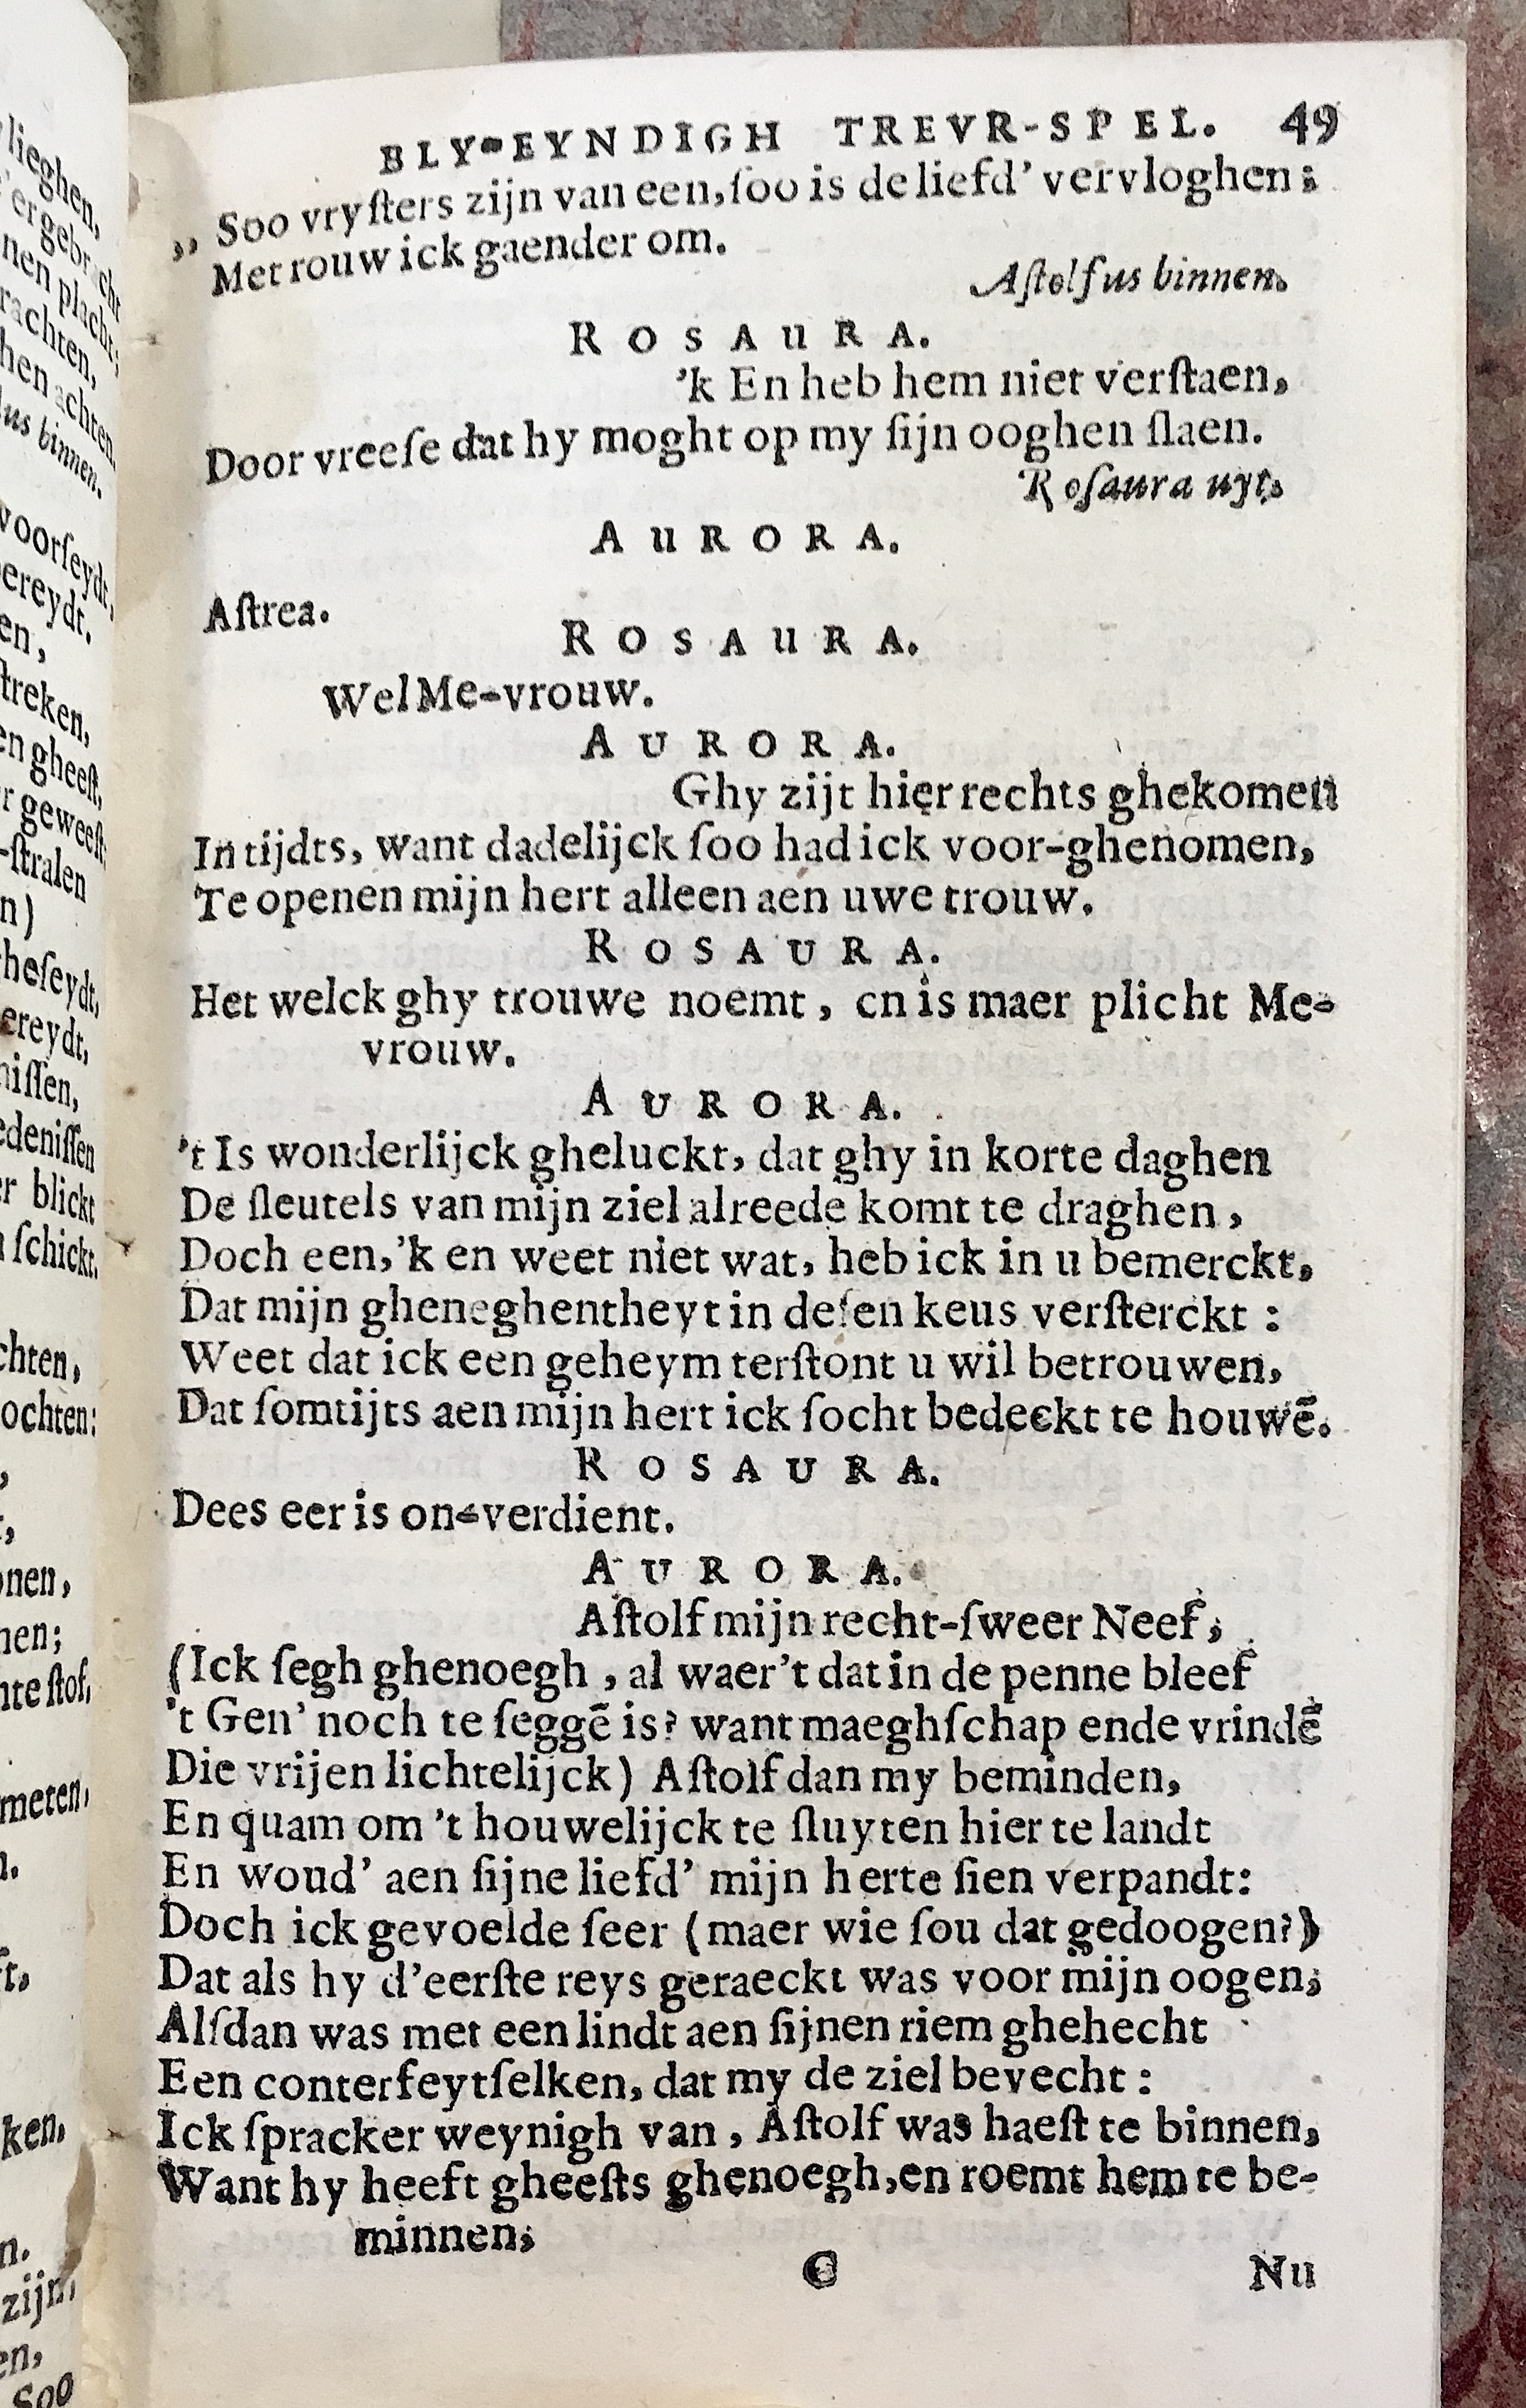 lieghen,
nen placht,
rachten,
hen achten
us binnen.
voorſeydt,
ereydt.
en,
ſtreken,
en gheeſt,
r geweeſt
-ſtralen
n)
heſeydt,
ereydt,
niſſen,
edeniſſen
r blickt
ſchickt.
chten,
ochten:
onen,
nen;
nte ſtof,
meten,
ken,
n.
zijn,
en,
Soo
BLY-EYNDIGH TREVR-SPEL. 49
„ Soo vryſters zijn van een, ſoo is de liefd' vervloghen;
Met rouw ick gaender om.
Aſtolfus binnen.
ROSAURA.
'k En heb hem niet verſtaen,
Door vreeſe dat hy moght op my ſijn ooghen ſlaen.
Roſaura uyt.
AURORA.
Aſtrea.
ROSAURA.
Wel Me-vrouw.
AURORA.
Ghy zijt hier rechts ghekomen
In tijdts, want dadelijck ſoo had ick voor-ghenomen,
Te openen mijn hert alleen aen uwe trouw.
ROSAURA.
Het welck ghy trouwe noemt, en is maer plicht Me-
vrouw.
AURORA.
't Is wonderlijck gheluckt, dat ghy in korte daghen
De ſleutels van mijn ziel alreede komt te draghen,
Doch een, 'k en weet niet wat, heb ick in u bemerckt,
Dat mijn gheneghentheyt in deſen keus verſterckt:
Weet dat ick een geheym terſtont u wil betrouwen,
Dat ſomtijts aen mijn hert ick ſocht bedeckt te houwē.
ROSAURA.
Dees eer is on-verdient.
AURORA.
Aſtolf mijn recht-ſweer Neef,
(Ick ſegh ghenoegh, al waer't dat in de penne bleef
't Gen' noch te ſeggē is? want maeghſchap ende vrindē
Die vrijen lichtelijck) Aſtolf dan my beminden,
En quam om 't houwelijck te ſluyten hier te landt
En woud' aen ſijne liefd' mijn herte ſien verpandt:
Doch ick gevoelde ſeer (maer wie ſou dat gedoogen?)
Dat als hy d'eerſte reys geraeckt was voor mijn oogen;
Alſdan was met een lindt aen ſijnen riem ghehecht
Een conterfeytſelken, dat my de ziel bevecht:
Ick ſpracker weynigh van, Aſtolf was haeſt te binnen,
Want hy heeft gheeſts ghenoegh, en roemt hem te be-
minnen;
C Nu